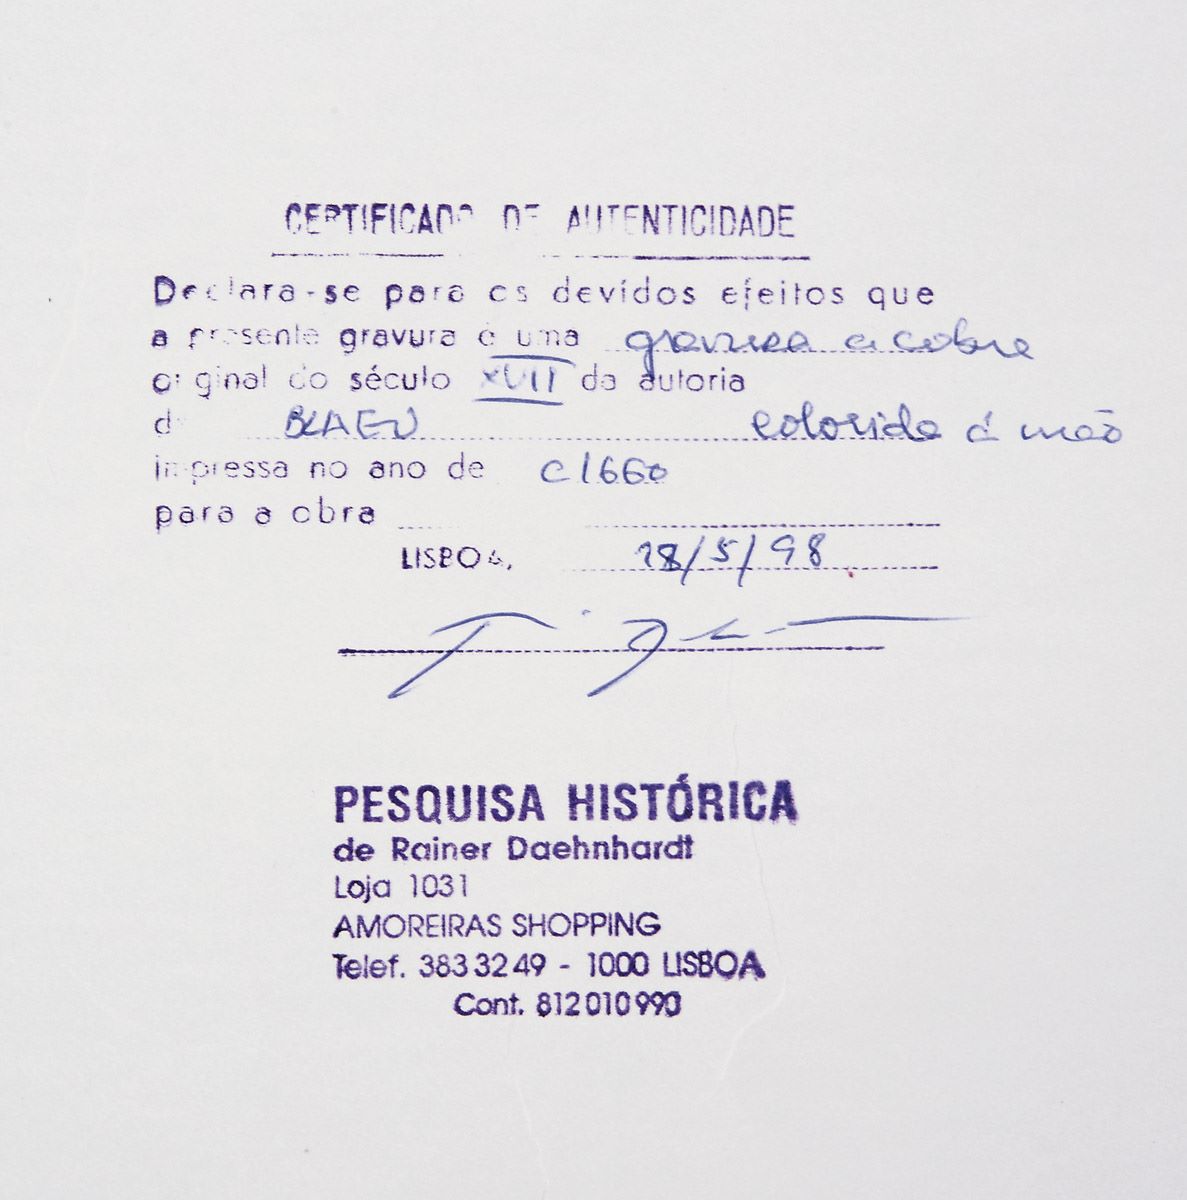 CERTIFICADO DE AUTENTICIDADE
Declara-se para os devidos efeitos que
a presente gravura é uma gravura a cobre
original do século XVII da autoria
de BLAEU colorida á mão
impressa no ano de c1660
para a obra
LISBOA, 18/5/98
PESQUISA HISTÓRICA
de Rainer Daehnhardt
Loja 1031
AMOREIRAS SHOPPING
Telef. 383 32 49 - 1000 LISBOA
Cont. 812 010 990